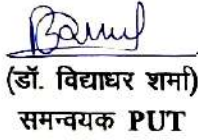 (डॉ. विद्याधर शर्मा)
समन्वयक PUT